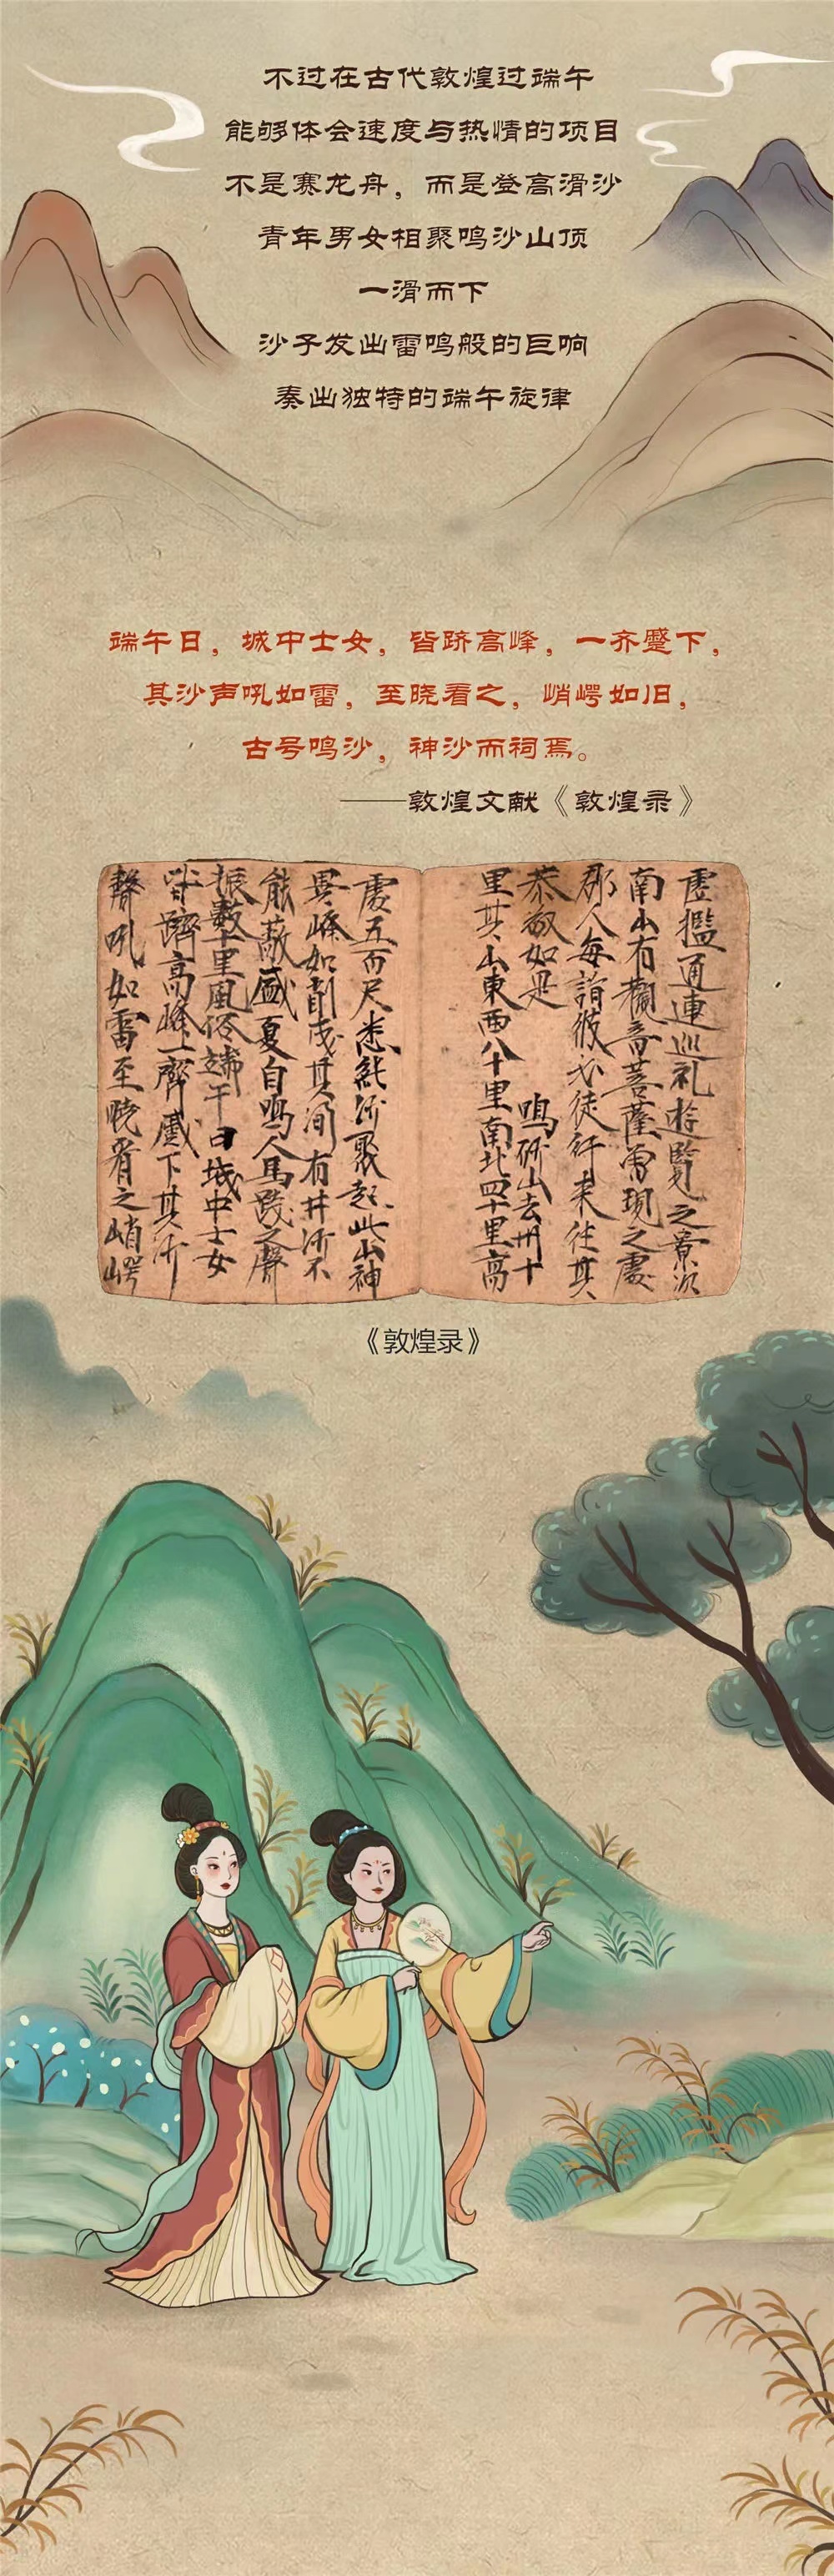 不过在古代敦煌过端午
能够体会速度与热情的项目
不是赛龙舟，而是登高滑沙
青年男女相聚鸣沙山顶
一滑而下
沙子发出雷鸣般的巨响
奏出独特的端午旋律
端午日，城中士女，皆跻高峰，一齐蹙下，
其沙声吼如雷，至晓看之，峭崿如旧，
古号鸣沙，神沙而祠焉。
——敦煌文献《敦煌录》
虛檻通連巡礼遊覽之景次
南山有觀音菩薩曾現之處
郡人每詣彼必徒行來往其
恭敬如是 鳴砂山去州十
里其山東西八十里南北四十里高
處五百尺悉純沙聚起此山神
異峰如削成其間有井沙不
能蔽盛夏自鳴人馬踐之聲
振數十里風俗端午日城中士女
皆躋高峰一齊蹙下其沙
聲吼如雷至曉看之峭崿
《敦煌录》